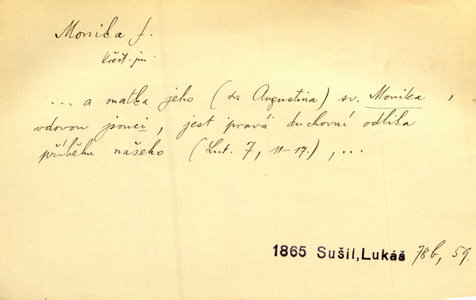 Monika f.
křest. jm.
... a matka jeho (sv. Augustina) sv. Monika,
vdovou jsouci, jest pravá duchovní odlika
příběhu našeho (Luk. 7, 11-17.), ...
1865 Sušil, Lukáš 78b, 59.